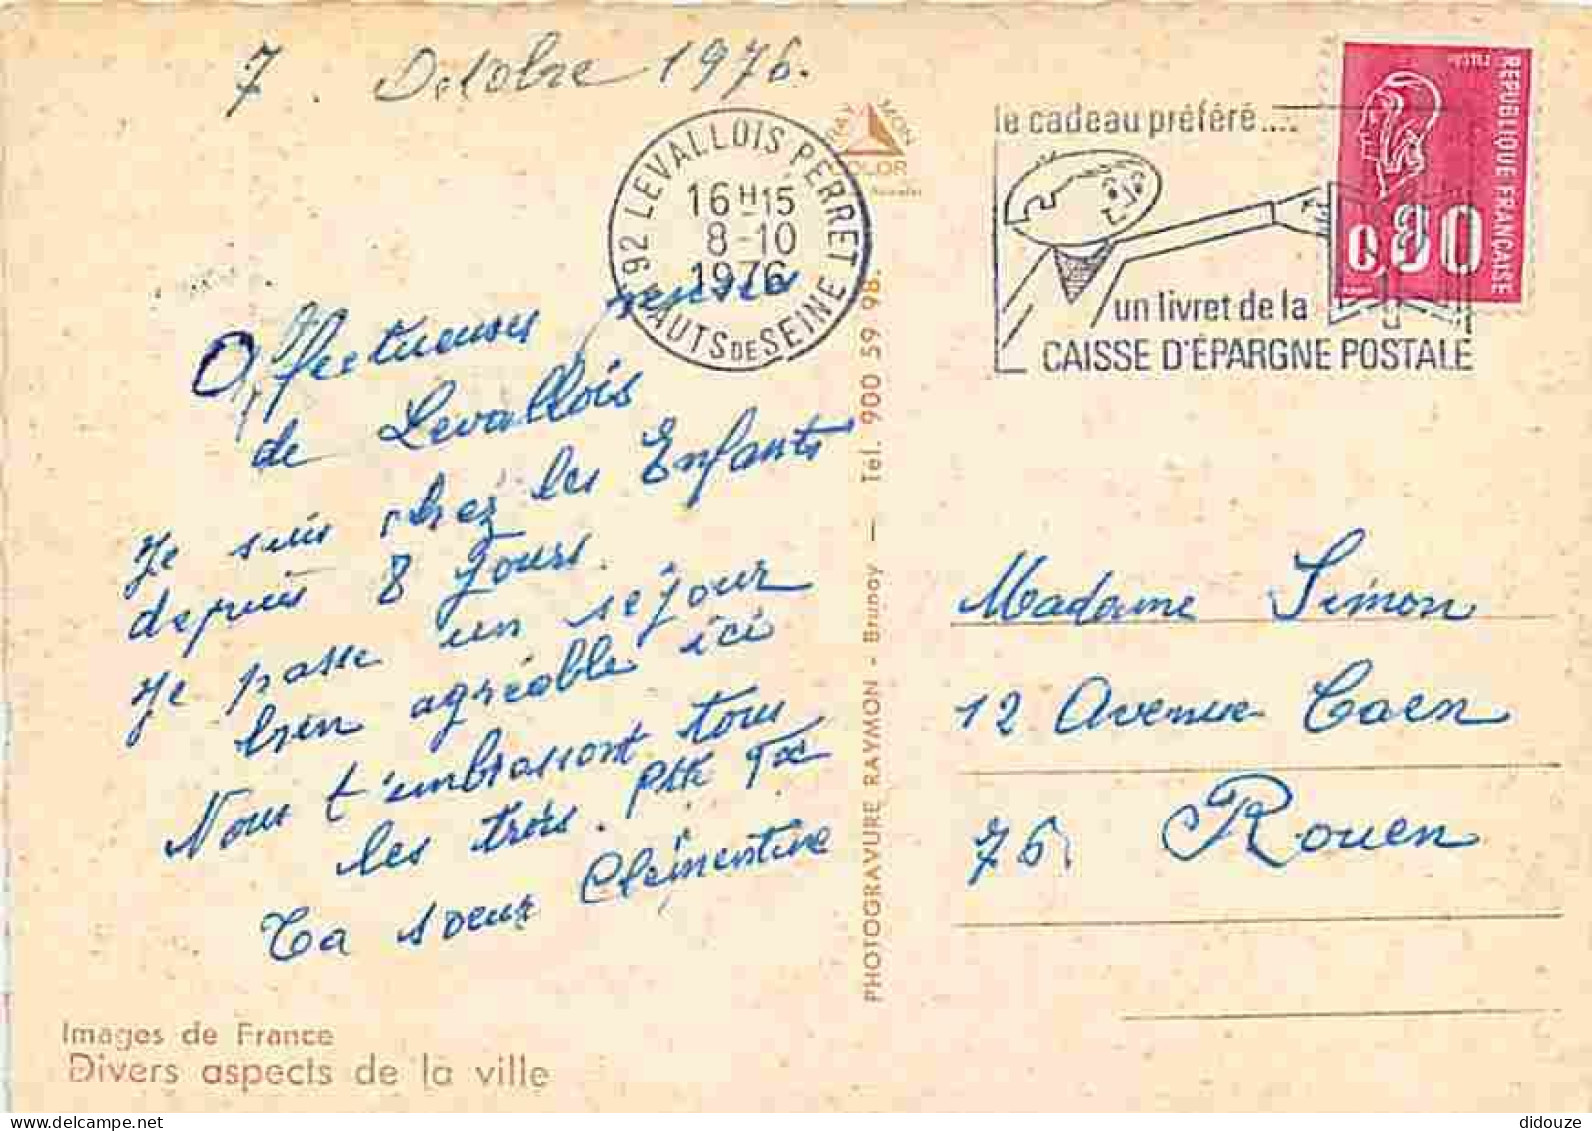 7. Octobre 1976.
RAYMON
COLOR
92 LEVALLOIS PERRET
16H15
8-10
1976
HAUTS DE SEINE
le cadeau préféré....
un livret de la
CAISSE D'ÉPARGNE POSTALE
POSTES
REPUBLIQUE FRANÇAISE
0,80
Affectueuses pensées
de Levallois
Je suis chez les Enfants
depuis 8 Jours.
Je passe un séjour
bien agréable ici
Nous t'embrassons tous
les trois. Ptte
Ta soeur Clémentine
PHOTOGRAVURE RAYMON - Brunoy — Tél. 900 59 98.
Madame Simon
12 Avenue Caen
76 Rouen
Images de France
Divers aspects de la ville
delcampe.net
didouze